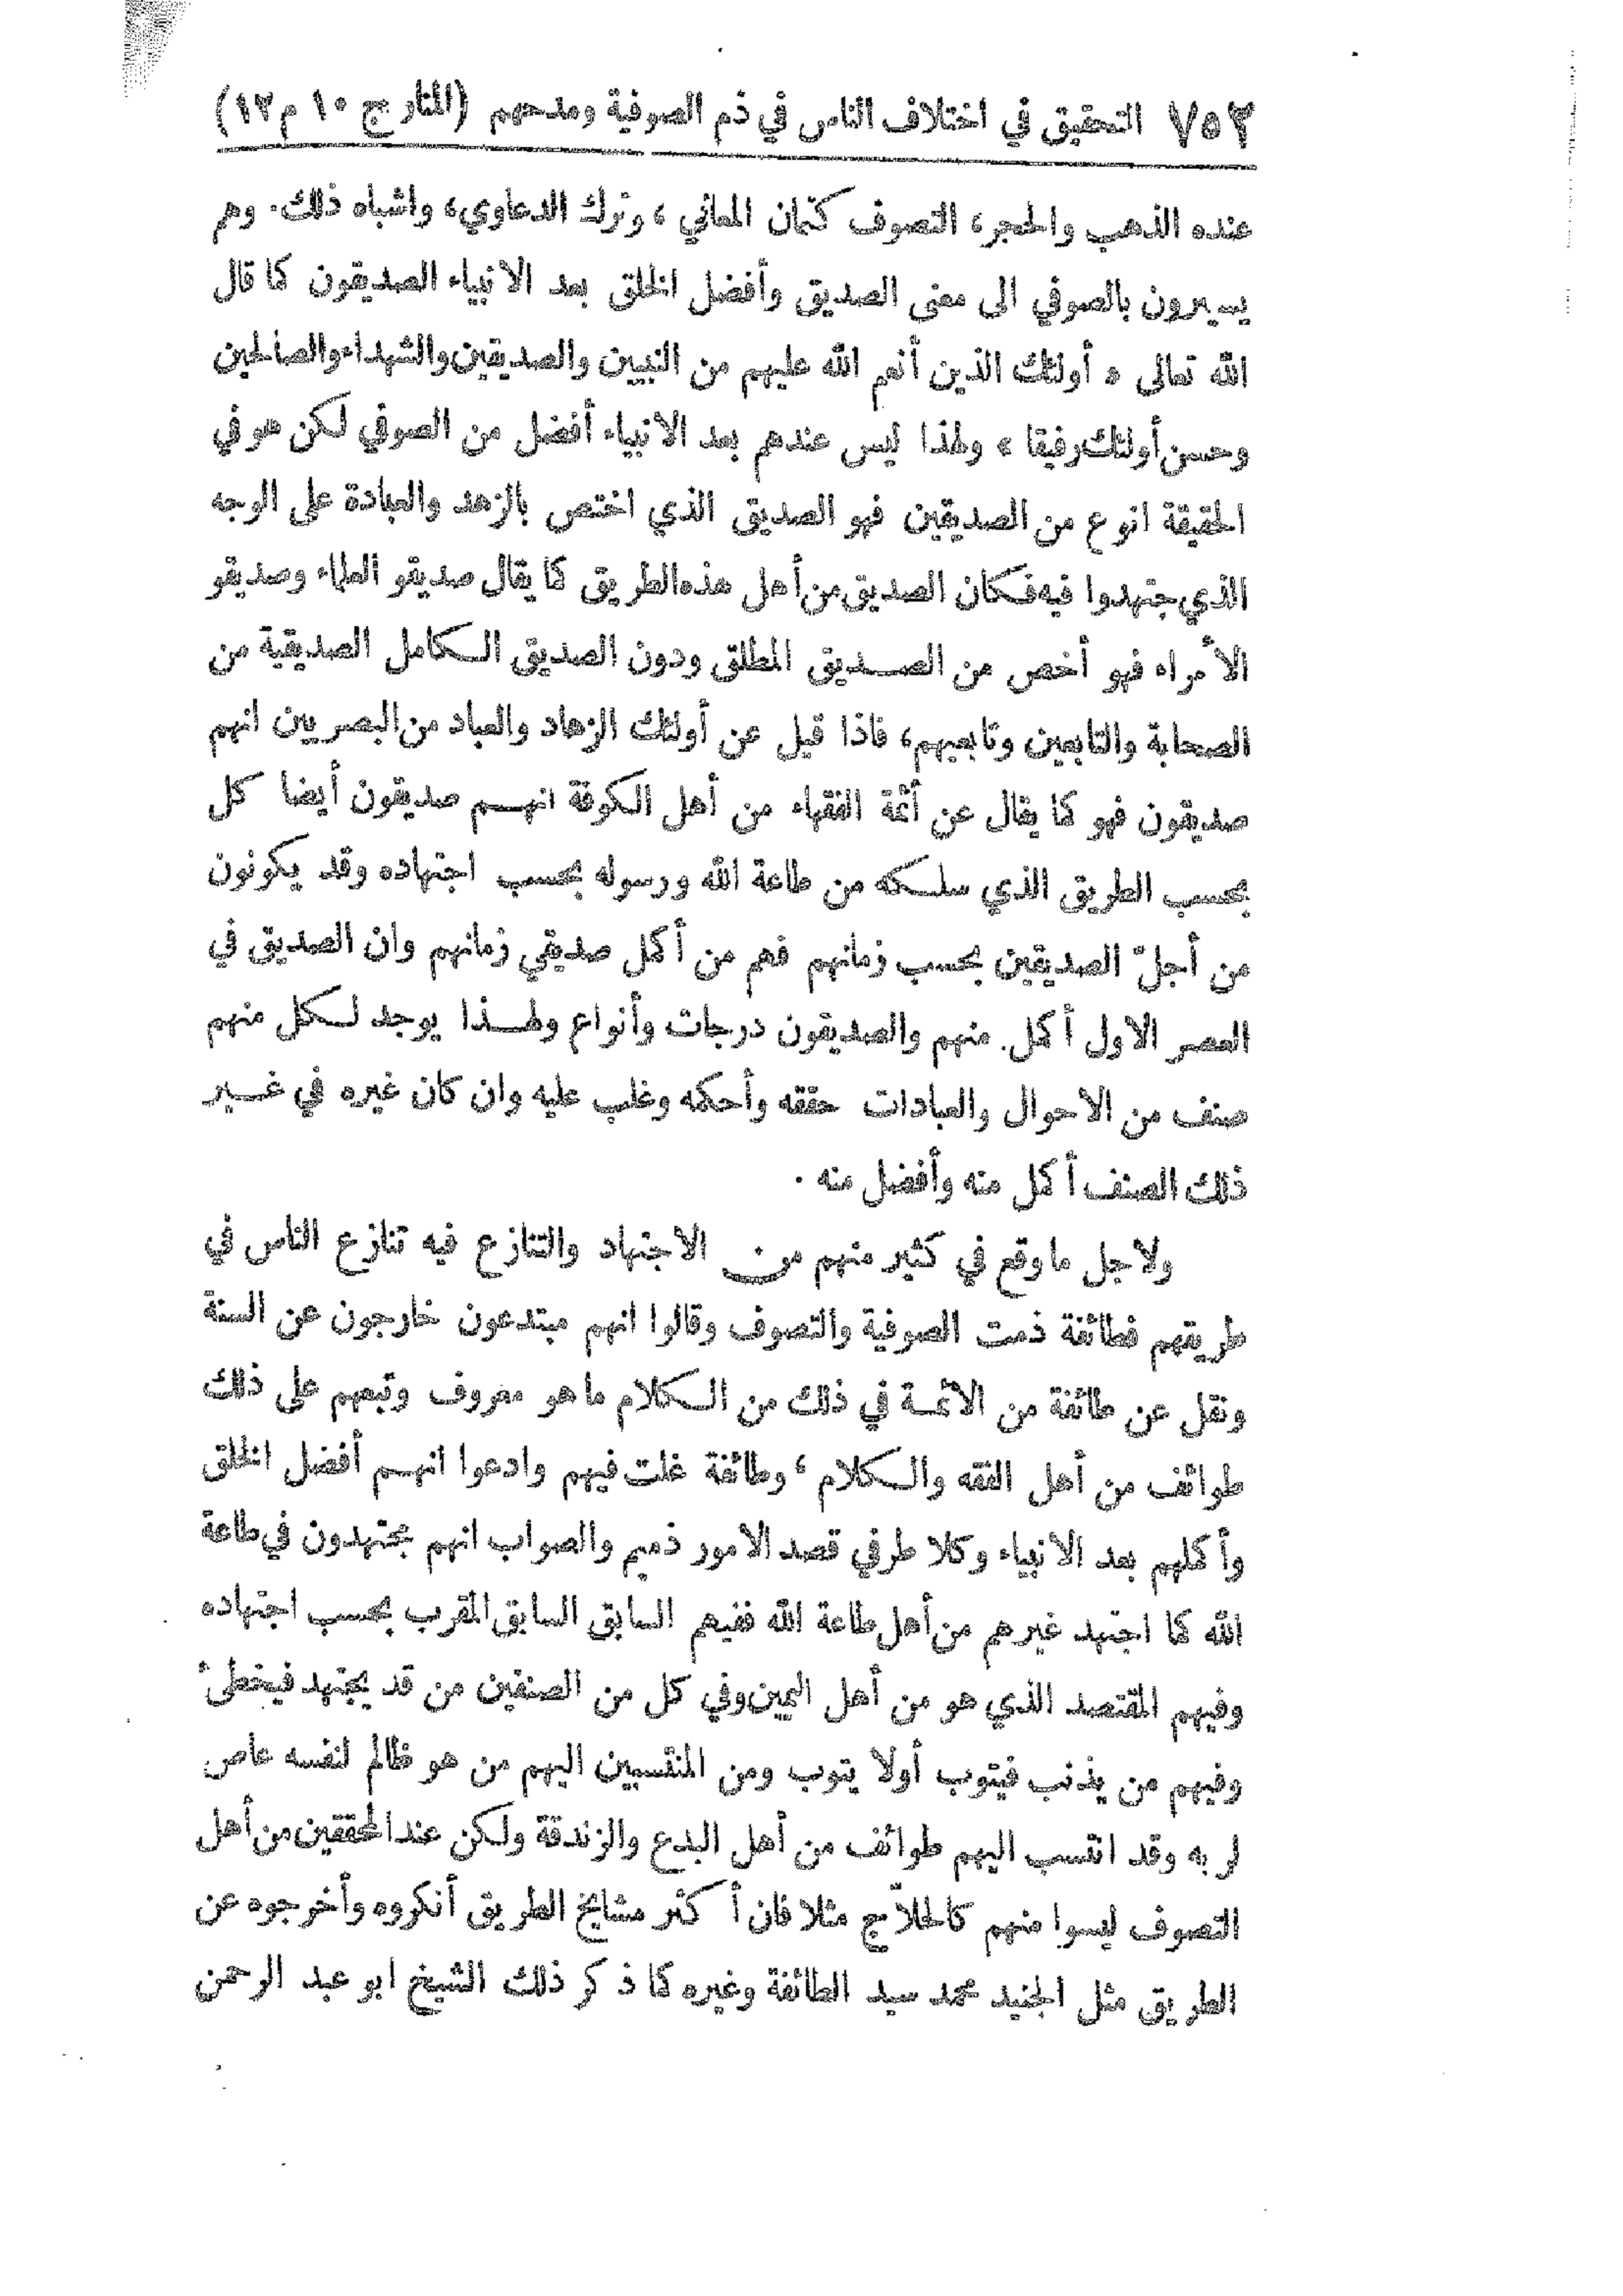 ٧٥٢ التحقيق في اختلاف الناس في ذم الصوفية ومدحهم (المنار ج ١٠ م ١٢)
عنده الذهب والحجر، التصوف كتمان المعاني ، وترك الدعاوي، واشباه ذلك. وهم
يسيرون بالصوفي الى معنى الصديق وأفضل الخلق بعد الانبياء الصديقون كما قال
الله تعالى « أولئك الذين أنعم الله عليهم من النبيين والصديقين والشهداء والصالحين
وحسن أولئك رفيقا » ولهذا ليس عندهم بعد الانبياء أفضل من الصوفي لكن هو في
الحقيقة انوع من الصديقين فهو الصديق الذي اختص بالزهد والعبادة على الوجه
الذي جتهدوا فيه فكان الصديق من أهل هذه الطريق كما يقال صديقو العلماء وصديقو
الأمراء فهو أخص من الصديق المطلق ودون الصديق الكامل الصديقية من
الصحابة والتابعين وتابعيهم، فاذا قيل عن أولئك الزهاد والعباد من البصريين انهم
صديقون فهو كما يقال عن أئمة الفقهاء من أهل الكوفة انهم صديقون أيضا كل
بحسب الطريق الذي سلكه من طاعة الله ورسوله بحسب اجتهاده وقد يكونون
من أجلّ الصديقين بحسب زمانهم فهم من أكمل صديقي زمانهم وان الصديق في
العصر الاول أكمل. منهم والصديقون درجات وأنواع ولهذا يوجد لكل منهم
صنف من الاحوال والعبادات حققه وأحكمه وغلب عليه وان كان غيره في غير
ذلك الصنف أكمل منه وأفضل منه .
ولاجل ما وقع في كثير منهم من الاجتهاد والتنازع فيه تنازع الناس في
طريقهم فطائفة ذمت الصوفية والتصوف وقالوا انهم مبتدعون خارجون عن السنة
ونقل عن طائفة من الأئمة في ذلك من الكلام ما هو معروف وتبعهم على ذلك
طوائف من أهل الفقه والكلام ، وطائفة غلت فيهم وادعوا انهم أفضل الخلق
وأكملهم بعد الانبياء وكلا طرفي قصد الامور ذميم والصواب انهم مجتهدون في طاعة
الله كما اجتهد غيرهم من أهل طاعة الله ففيهم السابق السابق المقرب بحسب اجتهاده
وفيهم المقتصد الذي هو من أهل اليمين وفي كل من الصنفين من قد يجتهد فيخطئ
وفيهم من يذنب فيتوب أولا يتوب ومن المنتسبين اليهم من هو ظالم لنفسه عاص
لربه وقد انتسب اليهم طوائف من أهل البدع والزندقة ولكن عند المحققين من أهل
التصوف ليسوا منهم كالحلاّج مثلا فان أكثر مشايخ الطريق أنكروه وأخرجوه عن
الطريق مثل الجنيد محمد سيد الطائفة وغيره كما ذكر ذلك الشيخ ابو عبد الرحمن